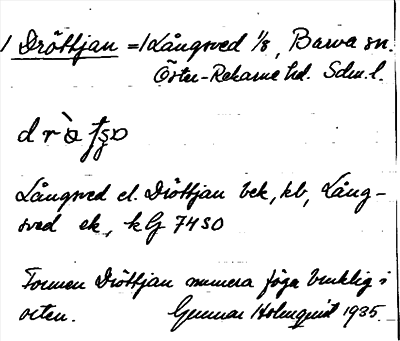 / Dröttjan =/ Långsved 1/8, Barva sn.
Öster-Rekarne hd. Sdm. l.
Långsved el. Dröttjan bek, kb, Lång-
sved ek, kG 74 SO
Formen Dröttjan numera föga bruklig i
orten. Gunnar Holmquist 1935.